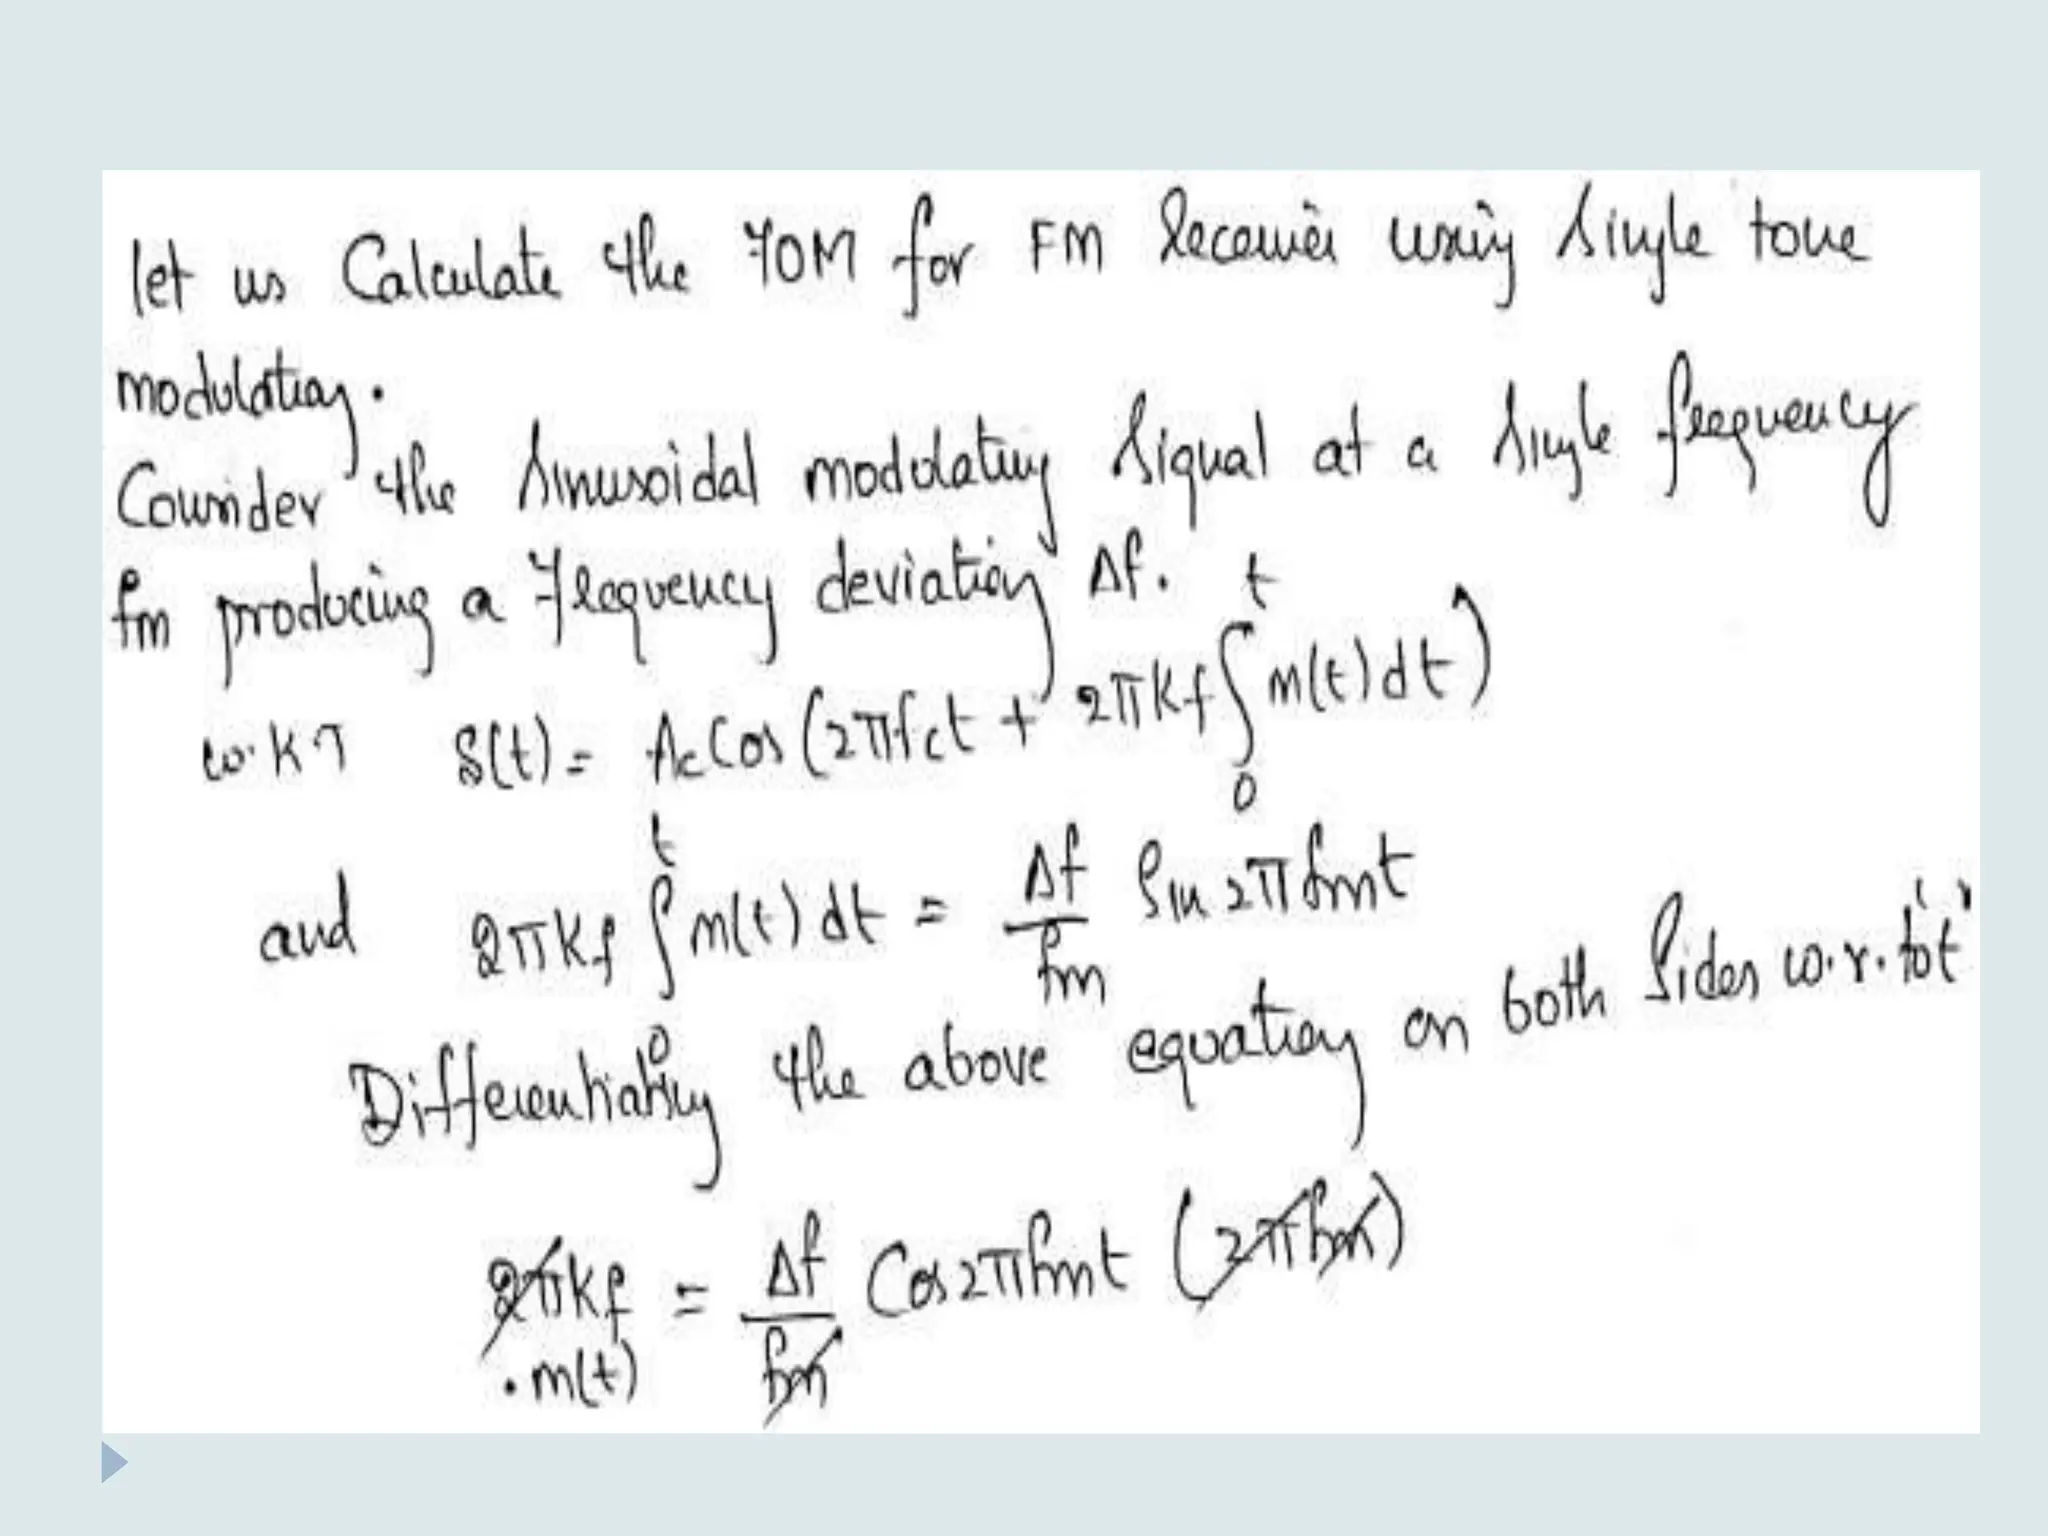 let us Calculate the FOM for FM Receiver using single tone
modulation.
Consider the sinusoidal modulating signal at a single frequency
fm producing a frequency deviation Δf.
w.k.T S(t) = Ac Cos (2πfct + 2πkf ∫₀ᵗ m(t) dt)
and 2πkf ∫₀ᵗ m(t) dt = Δf/fm Sin 2πfmt
Differentiating the above equation on both sides w.r.to 't'
2πkf . m(t) = Δf/fm Cos 2πfmt (2πfm)